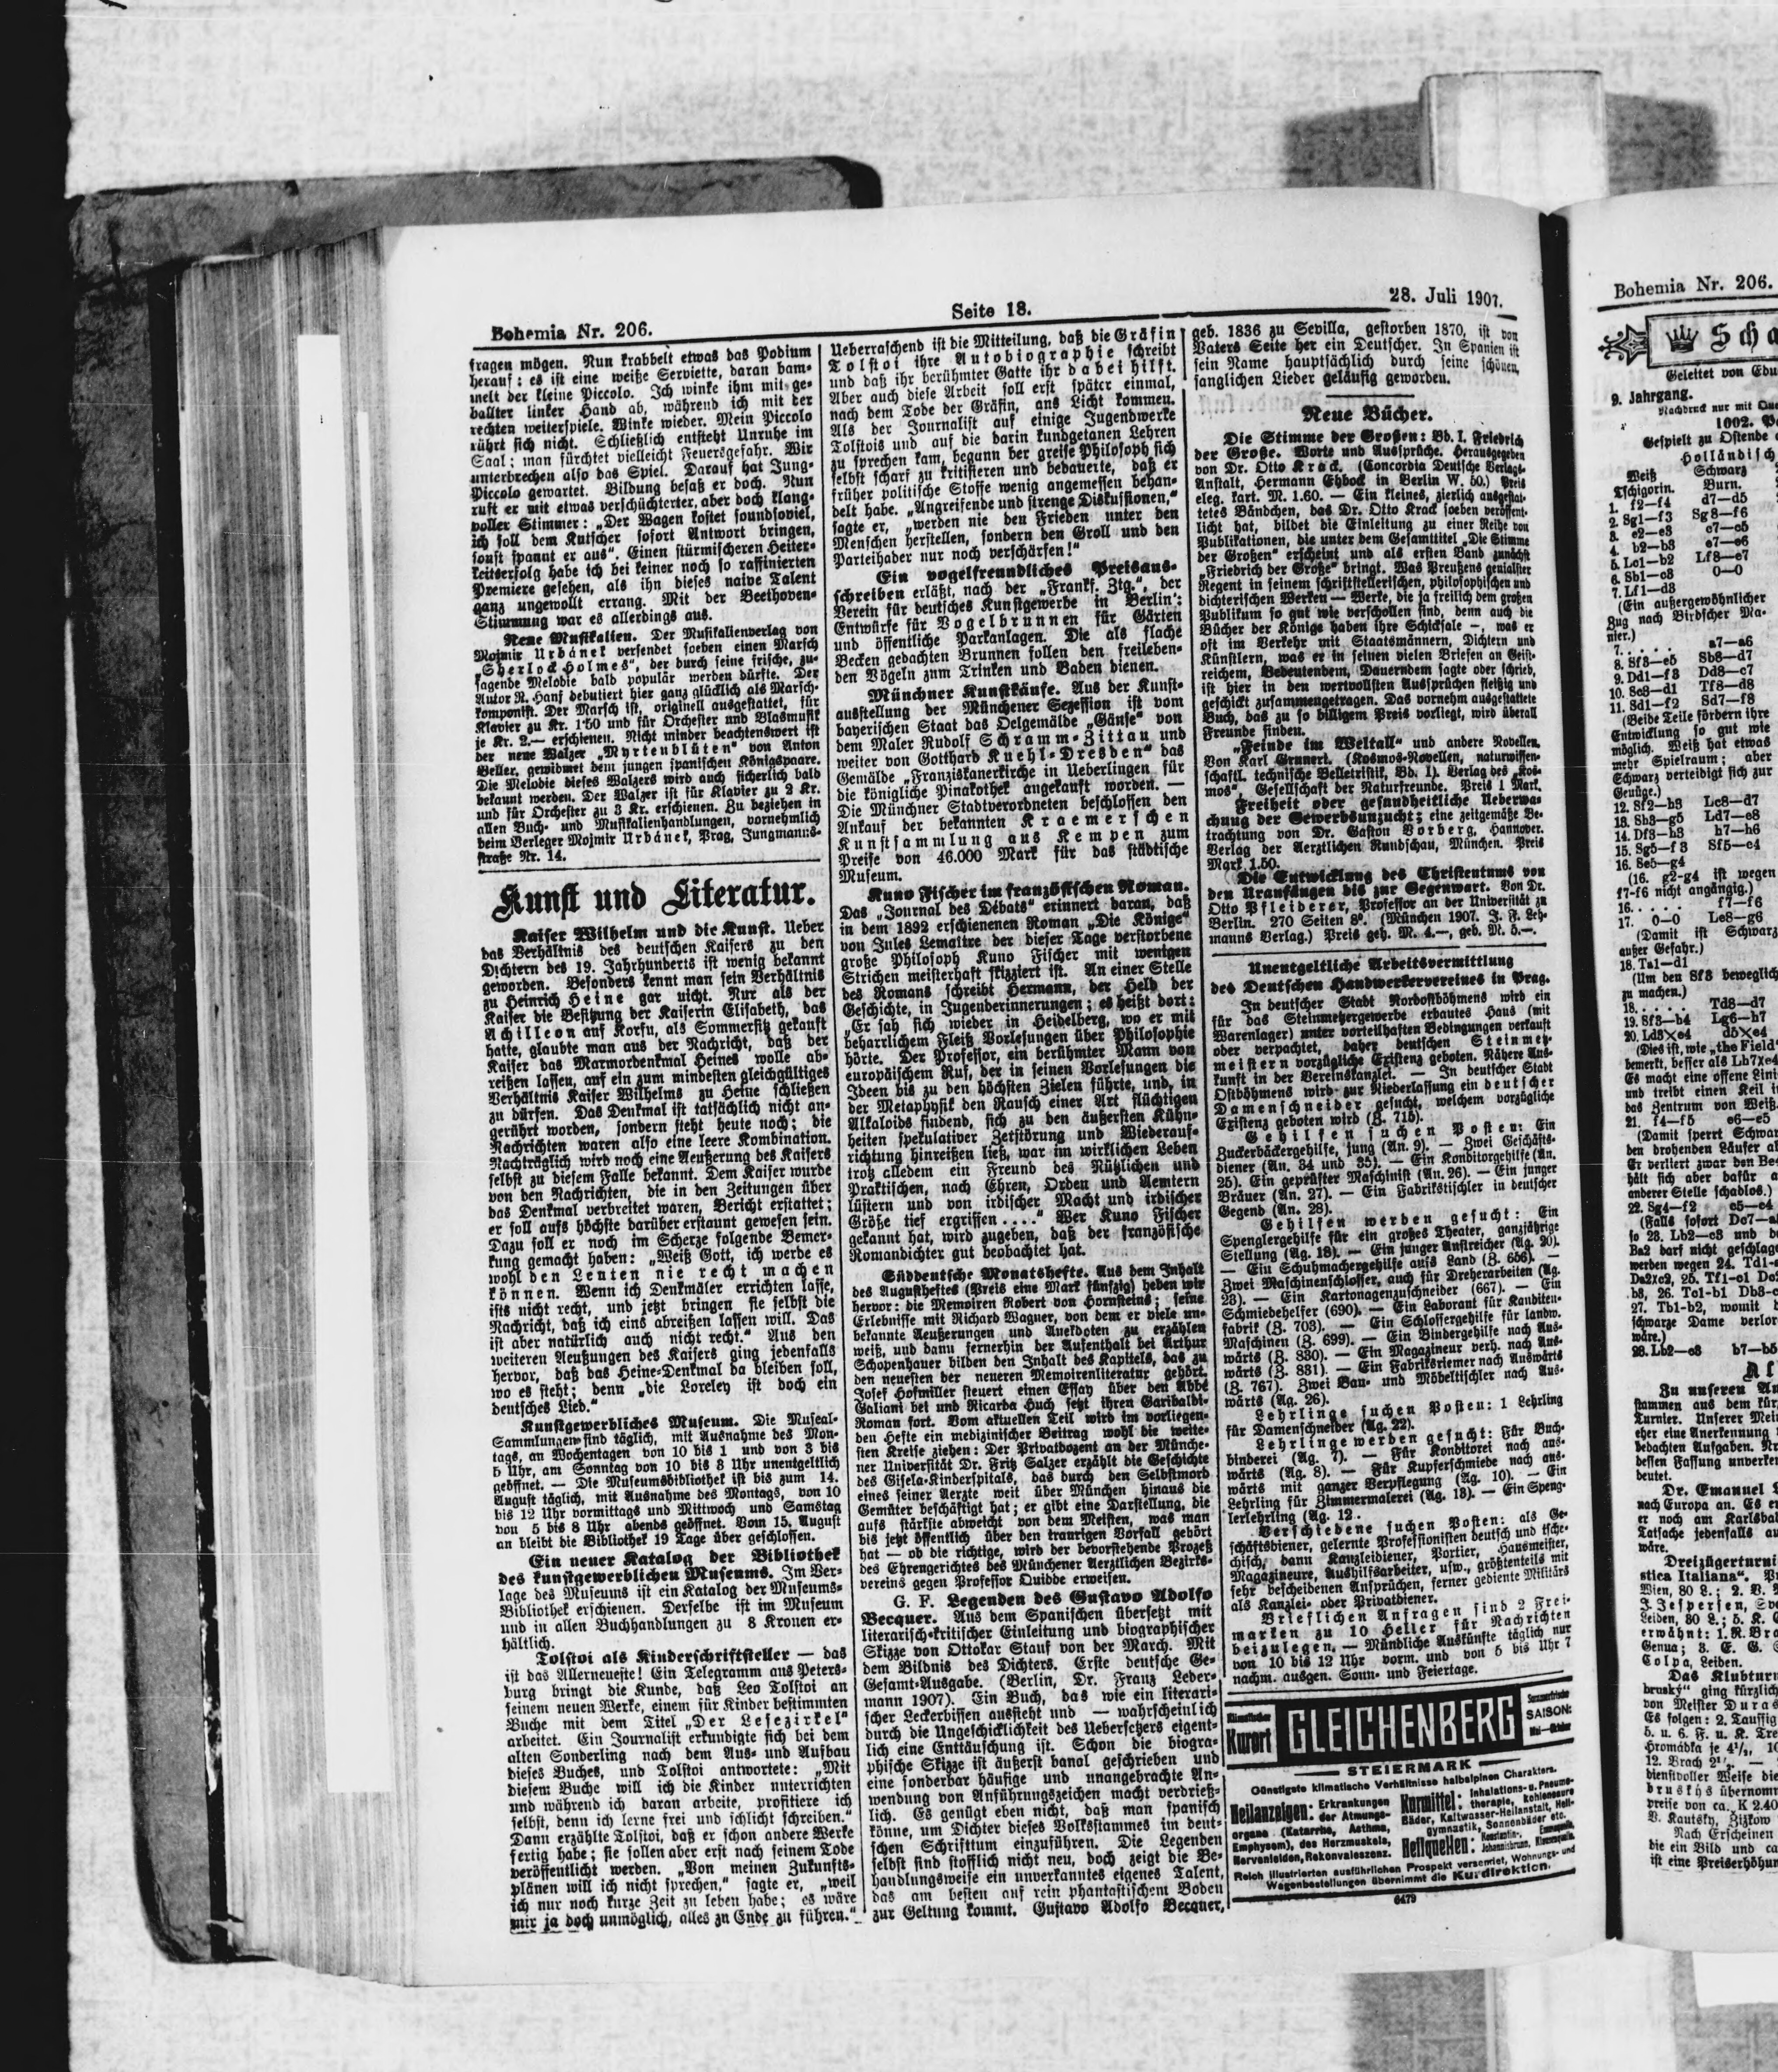 Bohemia Nr. 206.
Seite 18.
28. Juli 1907.
fragen mögen. Nun krabbelt etwas das Podium
herauf: es ist eine weiße Serviette, daran bam-
melt der kleine Piccolo. Ich winke ihm mit ge-
ballter linker Hand ab, während ich mit der
rechten weiterspiele. Winke wieder. Mein Piccolo
rührt sich nicht. Schließlich entsteht Unruhe im
Saal; man fürchtet vielleicht Feuersgefahr. Wir
unterbrechen also das Spiel. Darauf hat Jung-
Piccolo gewartet. Bildung besaß er doch. Nun
ruft er mit etwas verschüchterter, aber doch klang-
voller Stimmer: „Der Wagen kostet soundsoviel,
ich soll dem Kutscher sofort Antwort bringen,
sonst spannt er aus“. Einen stürmischeren Heiter-
keitserfolg habe ich bei keiner noch so raffinierten
Premiere gesehen, als ihn dieses naive Talent
ganz ungewollt errang. Mit der Beethoven-
Stimmung war es allerdings aus.
Neue Musikalien. Der Musikalienverlag von
Mojmir Urbánek versendet soeben einen Marsch
„Sherlock Holmes“, der durch seine frische, zu-
sagende Melodie bald populär werden dürfte. Der
Autor R. Hanf debutiert hier ganz glücklich als Marsch-
komponist. Der Marsch ist, originell ausgestattet, für
Klavier zu Kr. 1·50 und für Orchester und Blasmusik
je Kr. 2.— erschienen. Nicht minder beachtenswert ist
der neue Walzer „Myrtenblüten“ von Anton
Beller, gewidmet dem jungen spanischen Königspaare.
Die Melodie dieses Walzers wird auch sicherlich bald
bekannt werden. Der Walzer ist für Klavier zu 2 Kr.
und für Orchester zu 3 Kr. erschienen. Zu beziehen in
allen Buch- und Musikalienhandlungen, vornehmlich
beim Verleger Mojmir Urbánek, Prag, Jungmanns-
straße Nr. 14.
Kunst und Literatur.
Kaiser Wilhelm und die Kunst. Ueber
das Verhältnis des deutschen Kaisers zu den
Dichtern des 19. Jahrhunderts ist wenig bekannt
geworden. Besonders kennt man sein Verhältnis
zu Heinrich Heine gar nicht. Nur als der
Kaiser die Besitzung der Kaiserin Elisabeth, das
Achilleon auf Korfu, als Sommersitz gekauft
hatte, glaubte man aus der Nachricht, daß der
Kaiser das Marmordenkmal Heines wolle ab-
reißen lassen, auf ein zum mindesten gleichgültiges
Verhältnis Kaiser Wilhelms zu Heine schließen
zu dürfen. Das Denkmal ist tatsächlich nicht an-
gerührt worden, sondern steht heute noch; die
Nachrichten waren also eine leere Kombination.
Nachträglich wird noch eine Aeußerung des Kaisers
selbst zu diesem Falle bekannt. Dem Kaiser wurde
von den Nachrichten, die in den Zeitungen über
das Denkmal verbreitet waren, Bericht erstattet;
er soll aufs höchste darüber erstaunt gewesen sein.
Dazu soll er noch im Scherze folgende Bemer-
kung gemacht haben: „Weiß Gott, ich werde es
wohl den Leuten nie recht machen
können. Wenn ich Denkmäler errichten lasse,
ists nicht recht, und jetzt bringen sie selbst die
Nachricht, daß ich eins abreißen lassen will. Das
ist aber natürlich auch nicht recht.“ Aus den
weiteren Aeußungen des Kaisers ging jedenfalls
hervor, daß das Heine-Denkmal da bleiben soll,
wo es steht; denn „die Loreley ist doch ein
deutsches Lied.“
Kunstgewerbliches Museum. Die Museal-
Sammlungen sind täglich, mit Ausnahme des Mon-
tags, an Wochentagen von 10 bis 1 und von 3 bis
5 Uhr, am Sonntag von 10 bis 8 Uhr unentgeltlich
geöffnet. — Die Museumsbibliothek ist bis zum 14.
August täglich, mit Ausnahme des Montags, von 10
bis 12 Uhr vormittags und Mittwoch und Samstag
von 5 bis 8 Uhr abends geöffnet. Vom 15. August
an bleibt die Bibliothek 19 Tage über geschlossen.
Ein neuer Katalog der Bibliothek
des kunstgewerblichen Museums. Im Ver-
lage des Museums ist ein Katalog der Museums-
Bibliothek erschienen. Derselbe ist im Museum
und in allen Buchhandlungen zu 8 Kronen er-
hältlich.
Tolstoi als Kinderschriftsteller — das
ist das Allerneueste! Ein Telegramm aus Peters-
burg bringt die Kunde, daß Leo Tolstoi an
seinem neuen Werke, einem für Kinder bestimmten
Buche mit dem Titel „Der Lesezirkel“
arbeitet. Ein Journalist erkundigte sich bei dem
alten Sonderling nach dem Aus- und Aufbau
dieses Buches, und Tolstoi antwortete: „Mit
diesem Buche will ich die Kinder unterrichten
und während ich daran arbeite, profitiere ich
selbst, denn ich lerne frei und schlicht schreiben.“
Dann erzählte Tolstoi, daß er schon andere Werke
fertig habe; sie sollen aber erst nach seinem Tode
veröffentlicht werden. „Von meinen Zukunfts-
plänen will ich nicht sprechen,“ sagte er, „weil
ich nur noch kurze Zeit zu leben habe; es wäre
mir ja doch unmöglich, alles zu Ende zu führen.“
Ueberraschend ist die Mitteilung, daß die Gräfin
Tolstoi ihre Autobiographie schreibt
und daß ihr berühmter Gatte ihr dabei hilft.
Aber auch diese Arbeit soll erst später einmal,
nach dem Tode der Gräfin, ans Licht kommen.
Als der Journalist auf einige Jugendwerke
Tolstois und auf die darin kundgetanen Lehren
zu sprechen kam, begann der greise Philosoph sich
selbst scharf zu kritisieren und bedauerte, daß er
früher politische Stoffe wenig angemessen behan-
delt habe. „Angreifende und strenge Diskussionen,“
sagte er, „werden nie den Frieden unter den
Menschen herstellen, sondern den Groll und den
Parteihader nur noch verschärfen!“
Ein vogelfreundliches Preisaus-
schreiben erläßt, nach der „Frankf. Ztg.“, der
Verein für deutsches Kunstgewerbe in Berlin:
Entwürfe für Vogelbrunnen für Gärten
und öffentliche Parkanlagen. Die als flache
Becken gedachten Brunnen sollen den freileben-
den Vögeln zum Trinken und Baden dienen.
Münchner Kunstkäufe. Aus der Kunst-
ausstellung der Münchener Sezession ist vom
bayerischen Staat das Oelgemälde „Gänse“ von
dem Maler Rudolf Schramm-Zittau und
weiter von Gotthard Kuehl-Dresden“ das
Gemälde „Franziskanerkirche in Ueberlingen für
die königliche Pinakothek angekauft worden. —
Die Münchner Stadtverordneten beschlossen den
Ankauf der bekannten Kraemerschen
Kunstsammlung aus Kempen zum
Preise von 46.000 Mark für das städtische
Museum.
Kuno Fischer im französischen Roman.
Das „Journal des Débats“ erinnert daran, daß
in dem 1892 erschienenen Roman „Die Könige“
von Jules Lemaitre der dieser Tage verstorbene
große Philosoph Kuno Fischer mit wenigen
Strichen meisterhaft skizziert ist. An einer Stelle
des Romans schreibt Hermann, der Held der
Geschichte, in Jugenderinnerungen; es heißt dort:
„Er sah sich wieder in Heidelberg, wo er mit
beharrlichem Fleiß Vorlesungen über Philosophie
hörte. Der Professor, ein berühmter Mann von
europäischem Ruf, der in seinen Vorlesungen die
Ideen bis zu den höchsten Zielen führte, und, in
der Metaphysik den Rausch einer Art flüchtigen
Alkaloids findend, sich zu den äußersten Kühn-
heiten spekulativer Zerstörung und Wiederauf-
richtung hinreißen ließ, war im wirklichen Leben
trotz alledem ein Freund des Nützlichen und
Praktischen, nach Ehren, Orden und Aemtern
lüstern und von irdischer Macht und irdischer
Größe tief ergriffen . . . .“ Wer Kuno Fischer
gekannt hat, wird zugeben, daß der französische
Romandichter gut beobachtet hat.
Süddeutsche Monatshefte. Aus dem Inhalt
des Augustheftes (Preis eine Mark fünfzig) heben wir
hervor: die Memoiren Robert von Hornsteins; seine
Erlebnisse mit Richard Wagner, von dem er viele un-
bekannte Aeußerungen und Anekdoten zu erzählen
weiß, und dann fernerhin der Aufenthalt bei Arthur
Schopenhauer bilden den Inhalt des Kapitels, das zu
den neuesten der neueren Memoirenliteratur gehört.
Josef Hofmiller steuert einen Essay über den Abbé
Galiani bei und Ricarda Huch setzt ihren Garibaldi-
Roman fort. Vom aktuellen Teil wird im vorliegen-
den Hefte ein medizinischer Beitrag wohl die weite-
sten Kreise ziehen: Der Privatdozent an der Münche-
ner Universität Dr. Fritz Salzer erzählt die Geschichte
des Gisela-Kinderspitals, das durch den Selbstmord
eines seiner Aerzte weit über München hinaus die
Gemüter beschäftigt hat; er gibt eine Darstellung, die
aufs stärkste abweicht von dem Meisten, was man
bis jetzt öffentlich über den traurigen Vorfall gehört
hat — ob die richtige, wird der bevorstehende Prozeß
des Ehrengerichtes des Münchener Aerztlichen Bezirks-
vereins gegen Professor Quidde erweisen.
G. F. Legenden des Gustavo Adolfo
Becquer. Aus dem Spanischen übersetzt mit
literarisch-kritischer Einleitung und biographischer
Skizze von Ottokar Stauf von der March. Mit
dem Bildnis des Dichters. Erste deutsche Ge-
Gesamt-Ausgabe. (Berlin, Dr. Franz Leder-
mann 1907). Ein Buch, das wie ein literari-
scher Leckerbissen aussieht und — wahrscheinlich
durch die Ungeschicklichkeit des Uebersetzers eigent-
lich eine Enttäuschung ist. Schon die biogra-
phische Skizze ist äußerst banal geschrieben und
eine sonderbar häufige und unangebrachte An-
wendung von Anführungszeichen macht verdrieß-
lich. Es genügt eben nicht, daß man spanisch
könne, um Dichter dieses Volksstammes im deut-
schen Schrifttum einzuführen. Die Legenden
selbst sind stofflich nicht neu, doch zeigt die Be-
handlungsweise ein unverkanntes eigenes Talent,
das am besten auf rein phantastischem Boden
zur Geltung kommt. Gustavo Adolfo Becquer,
geb. 1836 zu Sevilla, gestorben 1870, ist von
Vaters Seite her ein Deutscher. In Spanien ist
sein Name hauptsächlich durch seine schönen,
sanglichen Lieder geläufig geworden.
Neue Bücher.
Die Stimme der Großen: Bd. I. Friedrich
der Große. Worte und Aussprüche. Herausgegeben
von Dr. Otto Krack. (Concordia Deutsche Verlags-
Anstalt, Hermann Ehbock in Berlin W. 50.) Preis
eleg. kart. M. 1.60. — Ein kleines, zierlich ausgestat-
tetes Bändchen, das Dr. Otto Krack soeben veröffent-
licht hat, bildet die Einleitung zu einer Reihe von
Publikationen, die unter dem Gesamttitel „Die Stimme
der Großen“ erscheint und als ersten Band zunächst
„Friedrich der Große“ bringt. Was Preußens genialster
Regent in seinem schriftstellerischen, philosophischen und
dichterischen Werken — Werke, die ja freilich dem großen
Publikum so gut wie verschollen sind, denn auch die
Bücher der Könige haben ihre Schicksale —, was er
oft im Verkehr mit Staatsmännern, Dichtern und
Künstlern, was er in seinen vielen Briefen an Geist-
reichem, Bedeutendem, Dauerndem sagte oder schrieb,
ist hier in den wertvollsten Aussprüchen fleißig und
geschickt zusammengetragen. Das vornehm ausgestattete
Buch, das zu so billigem Preis vorliegt, wird überall
Freunde finden.
„Feinde im Weltall“ und andere Novellen.
Von Karl Grunert. (Kosmos-Novellen, naturwissen-
schaftl. technische Belletristik, Bd. 1). Verlag des „Kos-
mos“, Gesellschaft der Naturfreunde. Preis 1 Mark.
Freiheit oder gesundheitliche Ueberwa-
chung der Gewerbsunzucht; eine zeitgemäße Be-
trachtung von Dr. Gaston Vorberg, Hannover.
Verlag der Aerztlichen Rundschau, München. Preis
Mark 1.50.
Die Entwicklung des Christentums von
den Uranfängen bis zur Gegenwart. Von Dr.
Otto Pfleiderer, Professor an der Universität zu
Berlin. 270 Seiten 8°. (München 1907. J. F. Leh-
manns Verlag.) Preis geh. M. 4.—, geb. M. 5.—.
Unentgeltliche Arbeitsvermittlung
des Deutschen Handwerkervereines in Prag.
In deutscher Stadt Nordostböhmens wird ein
für das Steinmetzergewerbe erbautes Haus (mit
Warenlager) unter vorteilhaften Bedingungen verkauft
oder verpachtet, daher deutschen Steinmetz-
meistern vorzügliche Existenz geboten. Nähere Aus-
kunft in der Vereinskanzlei. — In deutscher Stadt
Ostböhmens wird zur Niederlassung ein deutscher
Damenschneider gesucht, welchem vorzügliche
Existenz geboten wird (Z. 715).
Gehilfen suchen Posten: Ein
Zuckerbäckergehilfe, jung (An. 9). — Zwei Geschäfts-
diener (An. 34 und 35). — Ein Konditorgehilfe (An.
25). Ein geprüfter Maschinist (An. 26). — Ein junger
Bräuer (An. 27). — Ein Fabrikstischler in deutscher
Gegend (An. 28).
Gehilfen werden gesucht: Ein
Spenglergehilfe für ein großes Theater, ganzjährige
Stellung (Ag. 18). — Ein junger Anstreicher (Ag. 20).
— Ein Schuhmachergehilfe aufs Land (Z. 656). —
Zwei Maschinenschlosser, auch für Dreherarbeiten (Ag.
23). — Ein Kartonagenzuschneider (667). — Ein
Schmiedehelfer (690). — Ein Laborant für Kanditen-
fabrik (Z. 703). — Ein Schlossergehilfe für landw.
Maschinen (Z. 699). — Ein Bindergehilfe nach Aus-
wärts (Z. 830). — Ein Magazineur verh. nach Aus-
wärts (Z. 831). — Ein Fabriksriemer nach Auswärts
(Z. 767). Zwei Bau- und Möbeltischler nach Aus-
wärts (Ag. 26).
Lehrlinge suchen Posten: 1 Lehrling
für Damenschneider (Ag. 22).
Lehrlinge werden gesucht: Für Buch-
binderei (Ag. 7). — Für Konditorei nach aus-
wärts (Ag. 8). — Für Kupferschmiede nach aus-
wärts mit ganzer Verpflegung (Ag. 10). — Ein
Lehrling für Zimmermalerei (Ag. 13). — Ein Speng-
lerlehrling (Ag. 12.
Verschiedene suchen Posten: als Ge-
schäftsdiener, gelernte Professionisten deutsch und tsche-
chisch, dann Kanzleidiener, Portier, Hausmeister,
Magazineure, Aushilfsarbeiter, usw., größtenteils mit
sehr bescheidenen Ansprüchen, ferner gediente Militärs
als Kanzlei- oder Privatdiener.
Brieflichen Anfragen sind 2 Frei-
marken zu 10 Heller für Nachrichten
beizulegen. — Mündliche Auskünfte täglich nur
von 10 bis 12 Uhr vorm. und von 5 bis Uhr 7
nachm. ausgen. Sonn- und Feiertage.
Klimatischer
Kurort
GLEICHENBERG
Sommerfrische
SAISON:
Mai—Oktober
STEIERMARK
Günstigste klimatische Verhältnisse halbalpinen Charakters.
Heilanzeigen: Erkrankungen
der Atmungs-
organe (Katarrhe, Asthma,
Emphysem), des Herzmuskels,
Nervenleiden, Rekonvaleszenz.
Kurmittel: Inhalations- u. Pneuma-
therapie, kohlensaure
Bäder, Kaltwasser-Heilanstalt, Heil-
gymnastik, Sonnenbäder etc.
Heilquellen: Konstantin-, Emmaquelle,
Johannisbrunn, Klausenquelle.
Reich illustrierten ausführlichen Prospekt versendet, Wohnungs- und
Wagenbestellungen übernimmt die Kurdirektion.
6479
Bohemia Nr. 206.
Scha
Geleitet von Edu
9. Jahrgang.
Nachdruck nur mit Que
1002.
Gespielt zu Ostende
Holländisch
Weiß Schwarz
Tschigorin. Burn.
1. f2—f4 d7—d5
2. Sg1—f3 Sg8—f6
3. e2—e3 c7—c5
4. b2—b3 e7—e6
5. Lc1—b2 Lf8—e7
6. Sb1—c3 0—0
7. Lf1—d3
(Ein außergewöhnlicher
Zug nach Birdscher Ma-
nier.)
7. . . . . a7—a6
8. Sf3—e5 Sb8—d7
9. Dd1—f3 Dd8—c7
10. Sc3—d1 Tf8—d8
11. Sd1—f2 Sd7—f8
(Beide Teile fördern ihre
Entwicklung so gut wie
möglich. Weiß hat etwas
mehr Spielraum; aber
Schwarz verteidigt sich zur
Genüge.)
12. Sf2—h3 Lc8—d7
13. Sh3—g5 Ld7—e8
14. Df3—h3 h7—h6
15. Sg5—f3 Sf5—e4
16. Se5—g4
(16. g2-g4 ist wegen
f7-f6 nicht angängig.)
16. . . . . f7—f6
17. 0—0 Le8—g6
(Damit ist Schwarz
außer Gefahr.)
18. Ta1—d1
(Um den Sf3 beweglich
zu machen.)
18. . . . . Td8—d7
19. Sf3—h4 Lg6—h7
20. Ld3×e4 d5×e4
(Dies ist, wie „the Field“
bemerkt, besser als Lh7×e4
Es macht eine offene Lini
und treibt einen Keil i
das Zentrum von Weiß.
21. f4—f5 e6—e5
(Damit sperrt Schwar
den drohenden Läufer a
Er verliert zwar den Be
hält sich aber dafür a
anderer Stelle schadlos.)
22. Sg4—f2 c5—c4
(Falls sofort Dc7—a
so 23. Lb2—c3 und b
Ba2 darf nicht geschlage
werden wegen 24. Td1-
27. Tb1-b2, womit
schwarze Dame verlor
wäre.)
23. Lb2—c3 b7—b5
Zu unseren
stammen aus dem kür
Turnier. Unserer Mei
eher eine Anerkennung
bedachten Aufgaben.
dessen Fassung unverke
deutet.
Dr. Emanuel
nach Europa an. Es e
er noch am Karlsba
Tatsache jedenfalls au
wäre.
Dreizügerturni
stica Italiana“.
Wien, 80 L.; 2.
J. Jespersen,
Leiden, 30 L.; 5. K.
erwähnt: 1. R. Bra
Genua; 3. E. G.
Colpa, Leiden.
Das Klubturn
brusky“ ging kürzlich
von Meister Duras
Es folgen: 2. Taussig
5. u. 6. F. u. K. Tre
Hromádka je 4½,
12. Brach 2½.
dienstvoller Weise die
bruskys übernomm
preise von ca. K 2.40
V. Kautsky, Zizkow
Nach Erscheinen
die ein Bild und ca
ist eine Preiserhöhun